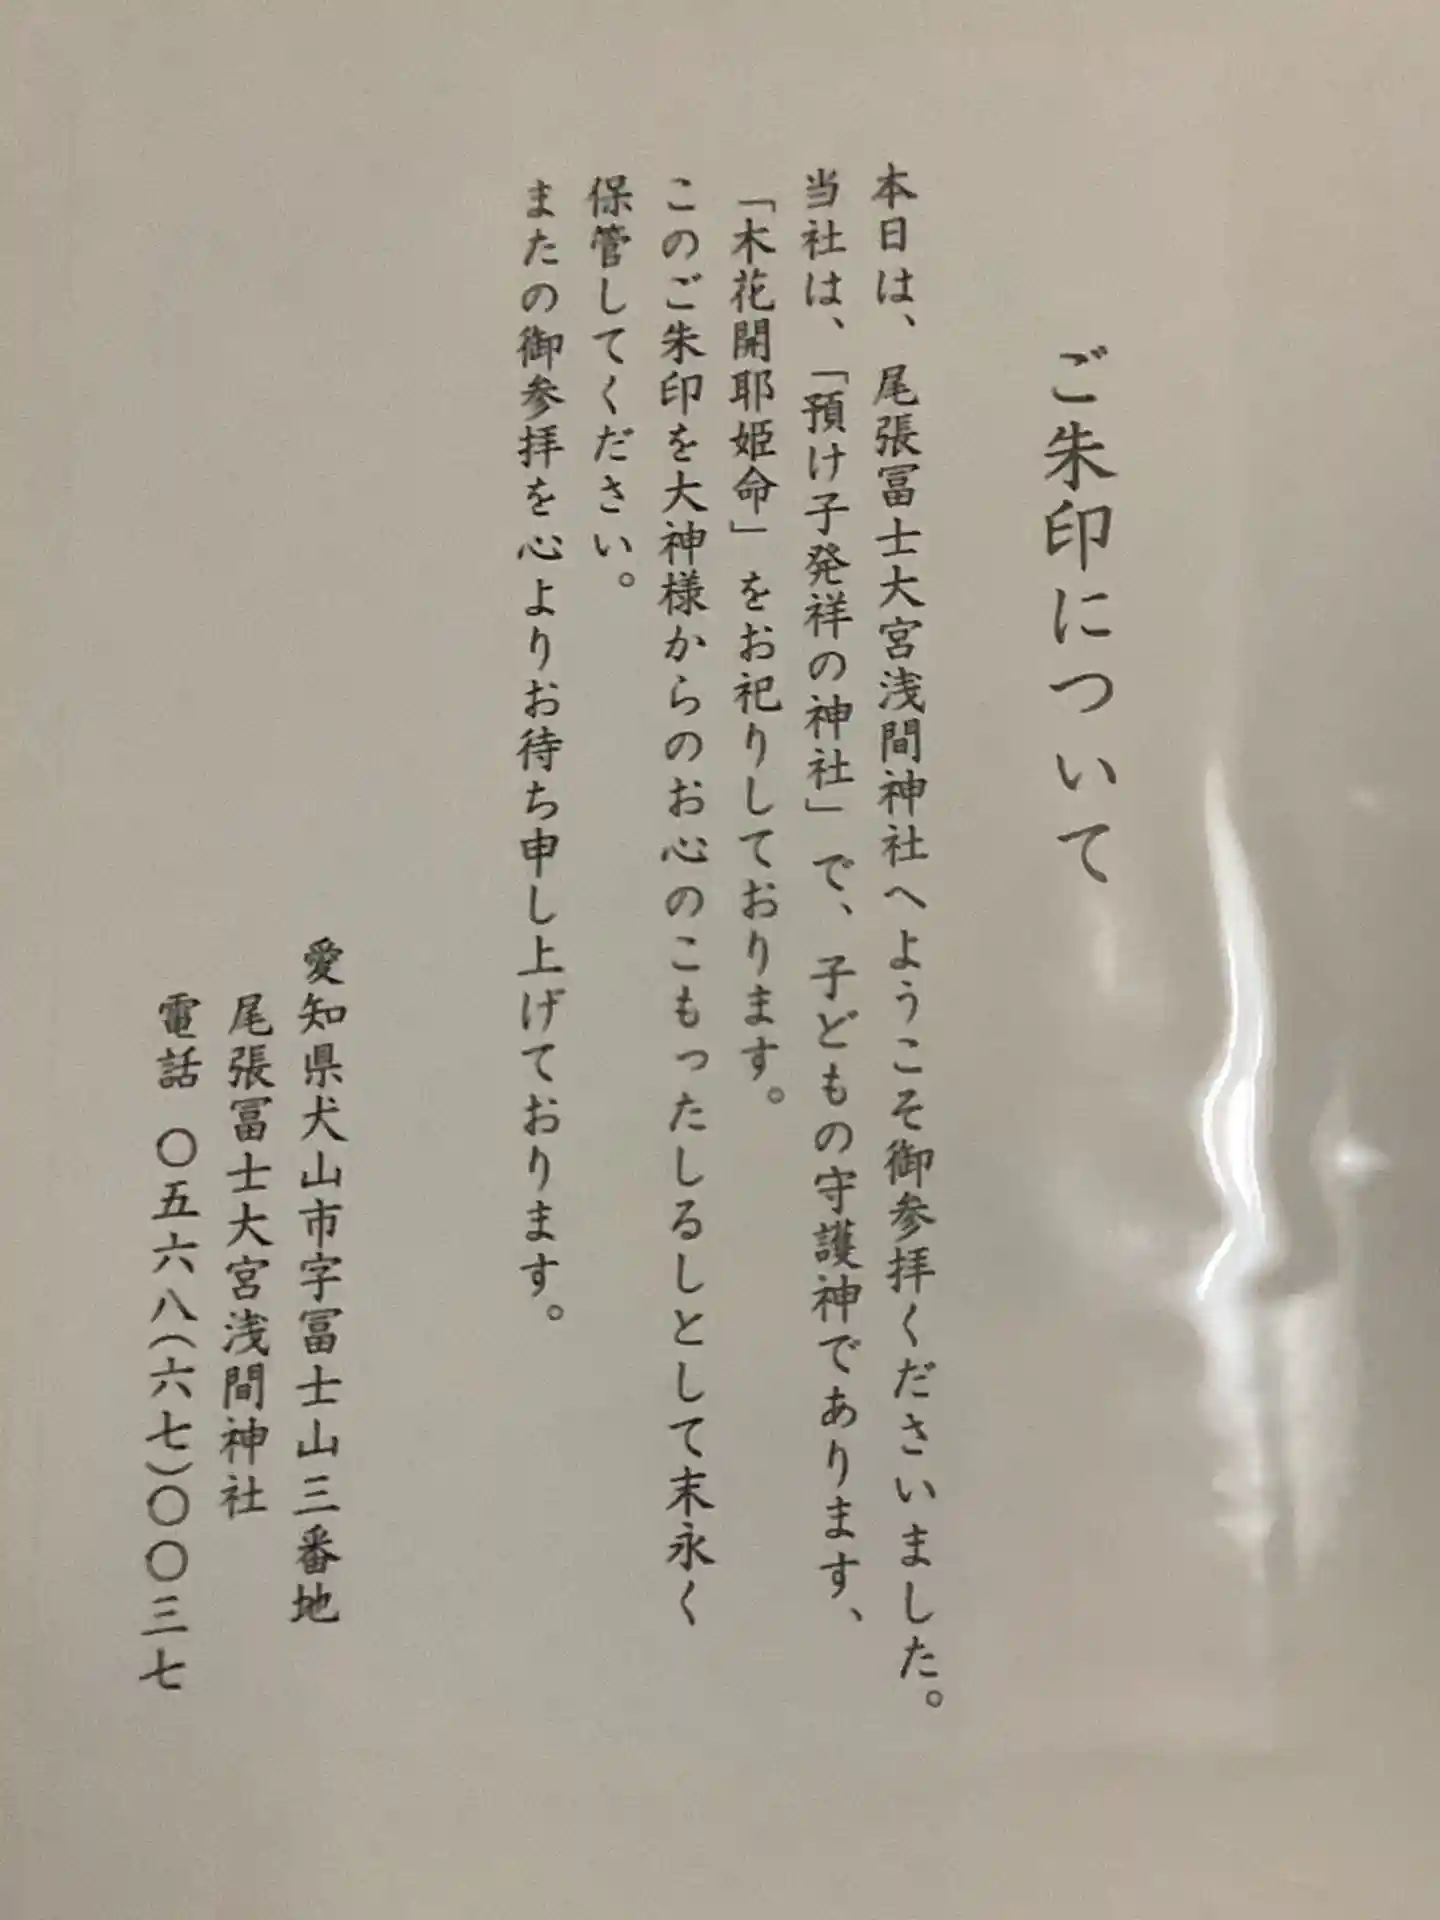 ご朱印について
本日は、尾張冨士大宮浅間神社へようこそ御参拝くださいました。
当社は、「預け子発祥の神社」で、子どもの守護神であります、
「木花開耶姫命」をお祀りしております。
このご朱印を大神様からのお心のこもったしるしとして末永く
保管してください。
またの御参拝を心よりお待ち申し上げております。
愛知県犬山市字冨士山三番地
尾張冨士大宮浅間神社
電話 〇五六八(六七)〇〇三七